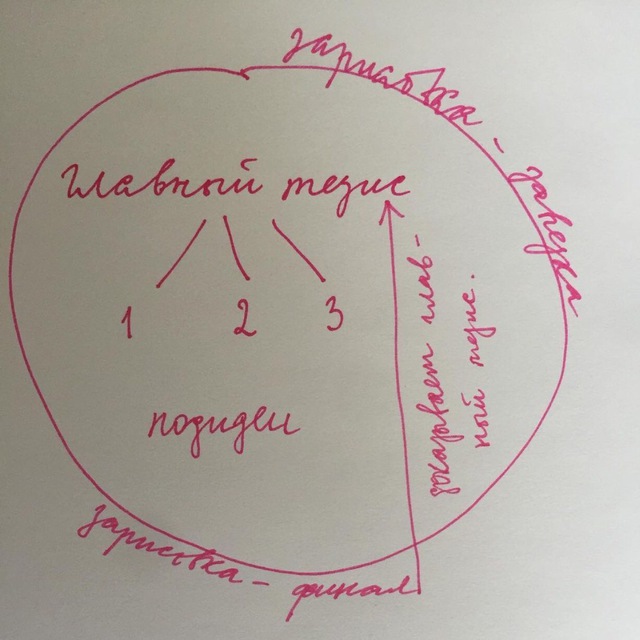 зарисовка - завязка
главный тезис
1 2 3
подидеи
доказывает глав-
ный тезис.
зарисовка - финал